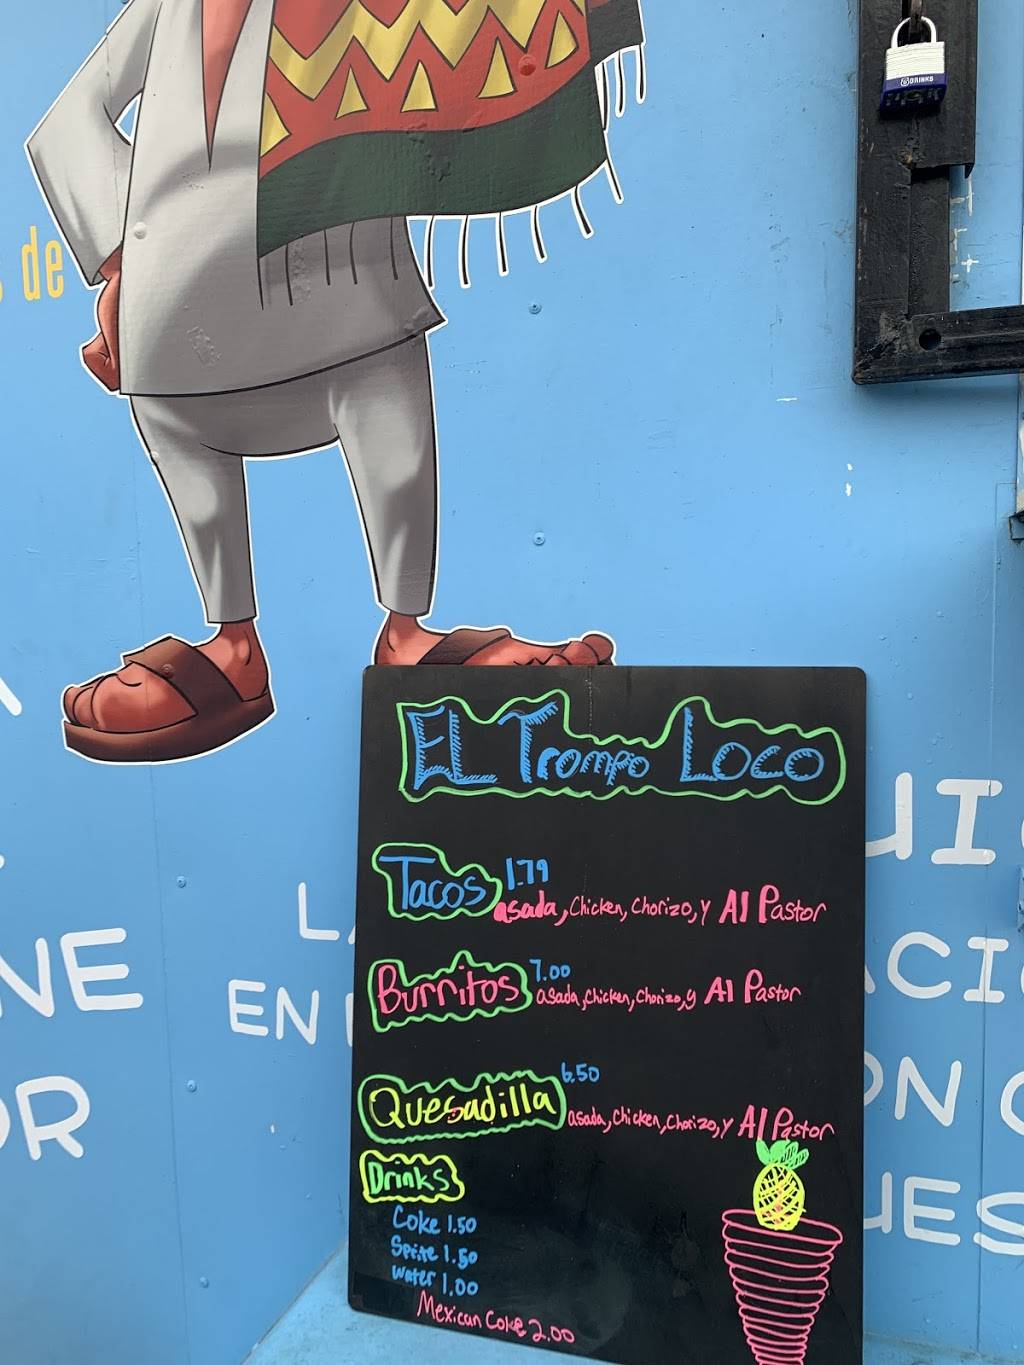 DRINKS
de
EL Trompo Loco
Tacos 1.79
asada, Chicken, Chorizo, y Al Pastor
Burritos 7.00
asada, chicken, chorizo, y Al Pastor
Quesadilla 6.50
asada, chicken, chorizo, y Al Pastor
Drinks
Coke 1.50
Sprite 1.50
Water 1.00
Mexican Coke 2.00
EN